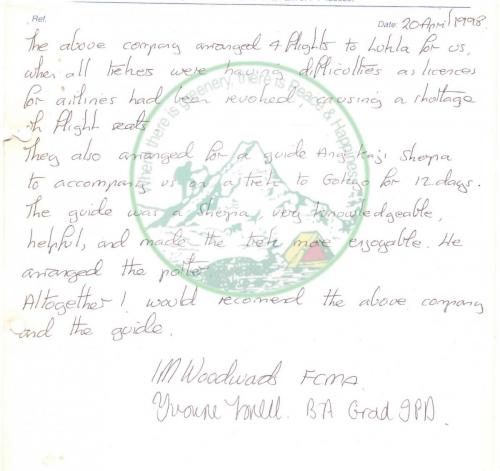 Ref.
Date: 20 April 1998.
The above company arranged 4 flights to Lukla for us,
when all trekers were having difficulties as licences
for airlines had been revoked, causing a shortage
in flight seats
They also arranged for a guide Ang Kaji Sherpa
to accompany us on a trek to Gokyo for 12 days.
The guide was a sherpa, very knowledgeable,
helpful, and made the trek more enjoyable. He
arranged the porter.
Altogether I would recomend the above company
and the guide.
IM Woodward FCMA.
Yvonne BA Grad IPD.
Where there is greenery, there is Peace & Happiness